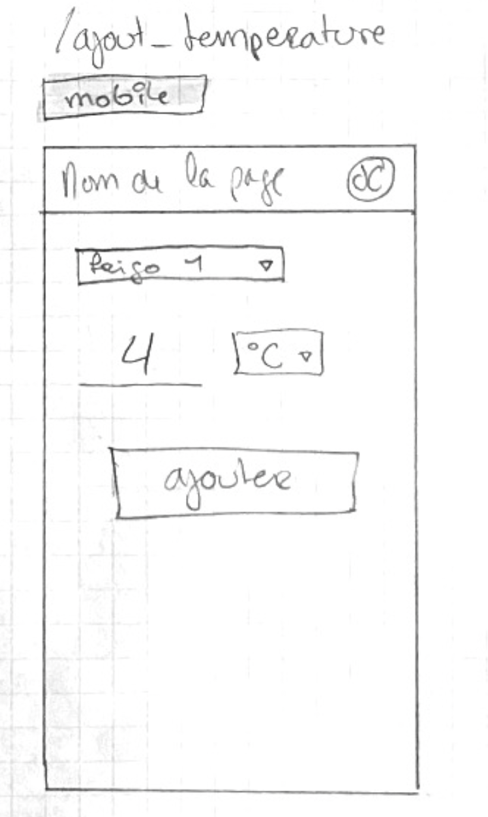 /ajout_temperature
mobile
Nom de la page
frigo 1
4 °C
ajouter